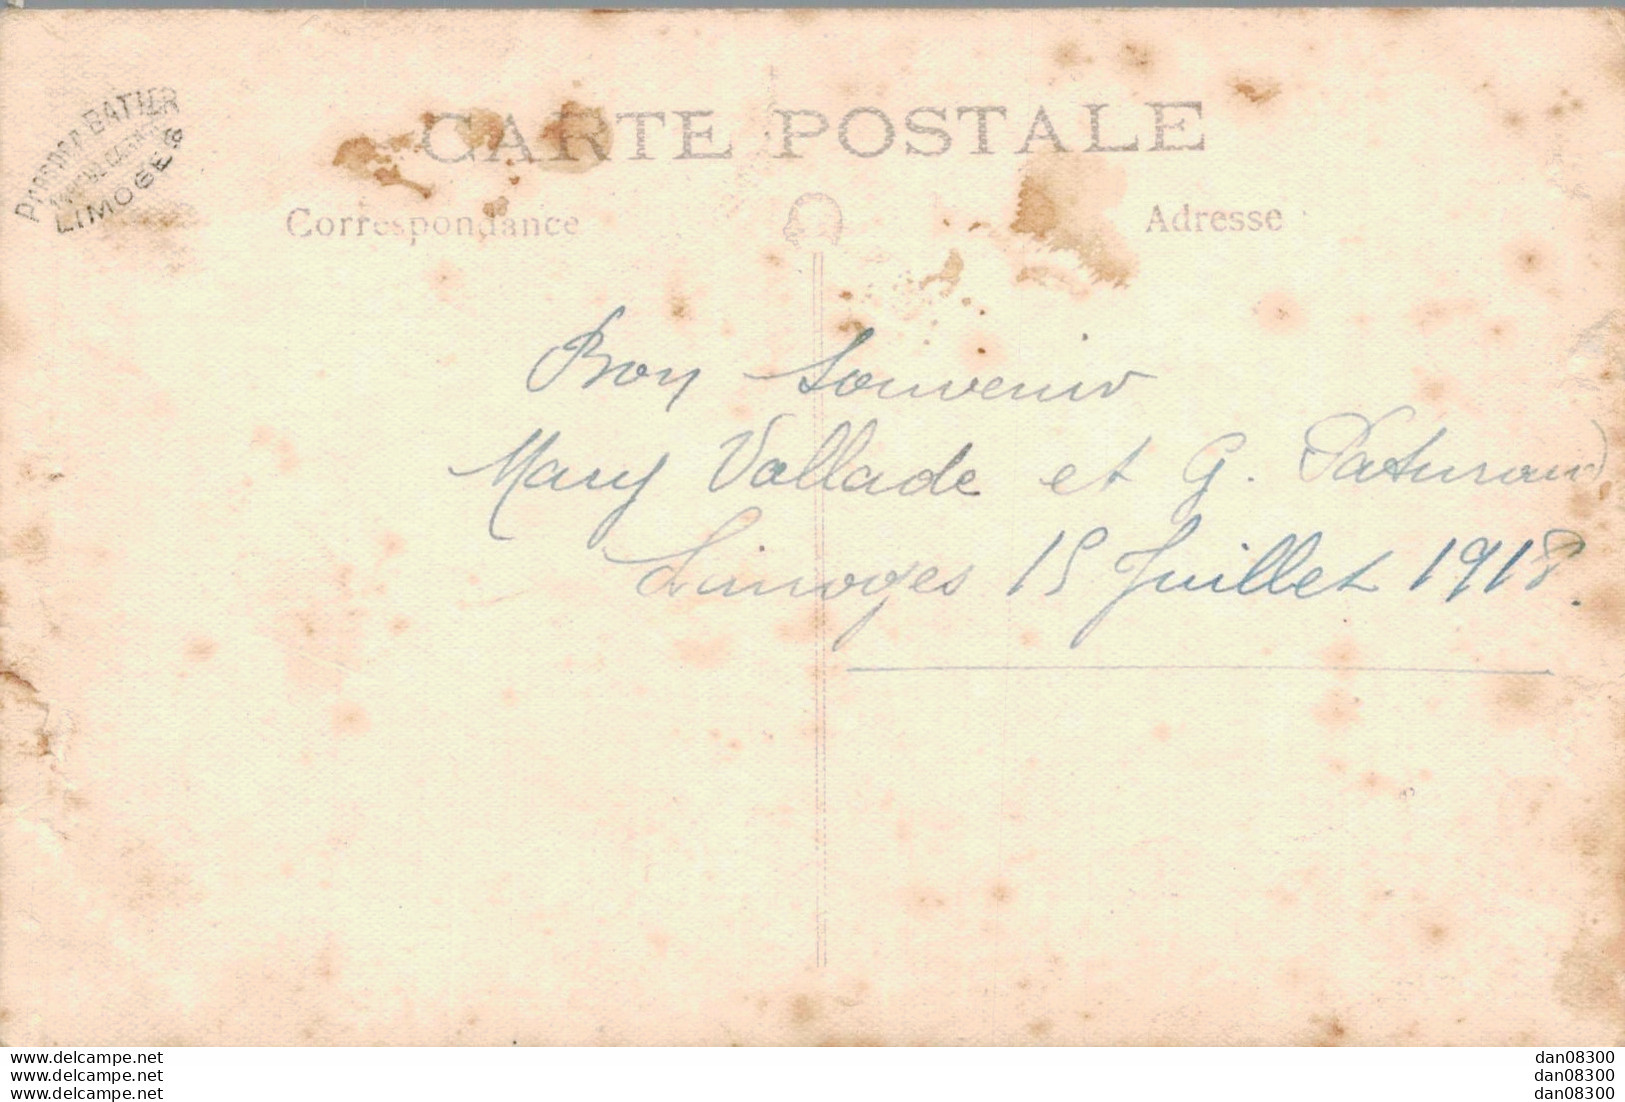 BATIER
LIMOGES
CARTE POSTALE
Correspondance
Adresse
Bon Souvenir
Mary Vallade et G. Paturaud
Limoges 15 Juillet 1918.
www.delcampe.net
www.delcampe.net
www.delcampe.net
dan08300
dan08300
dan08300